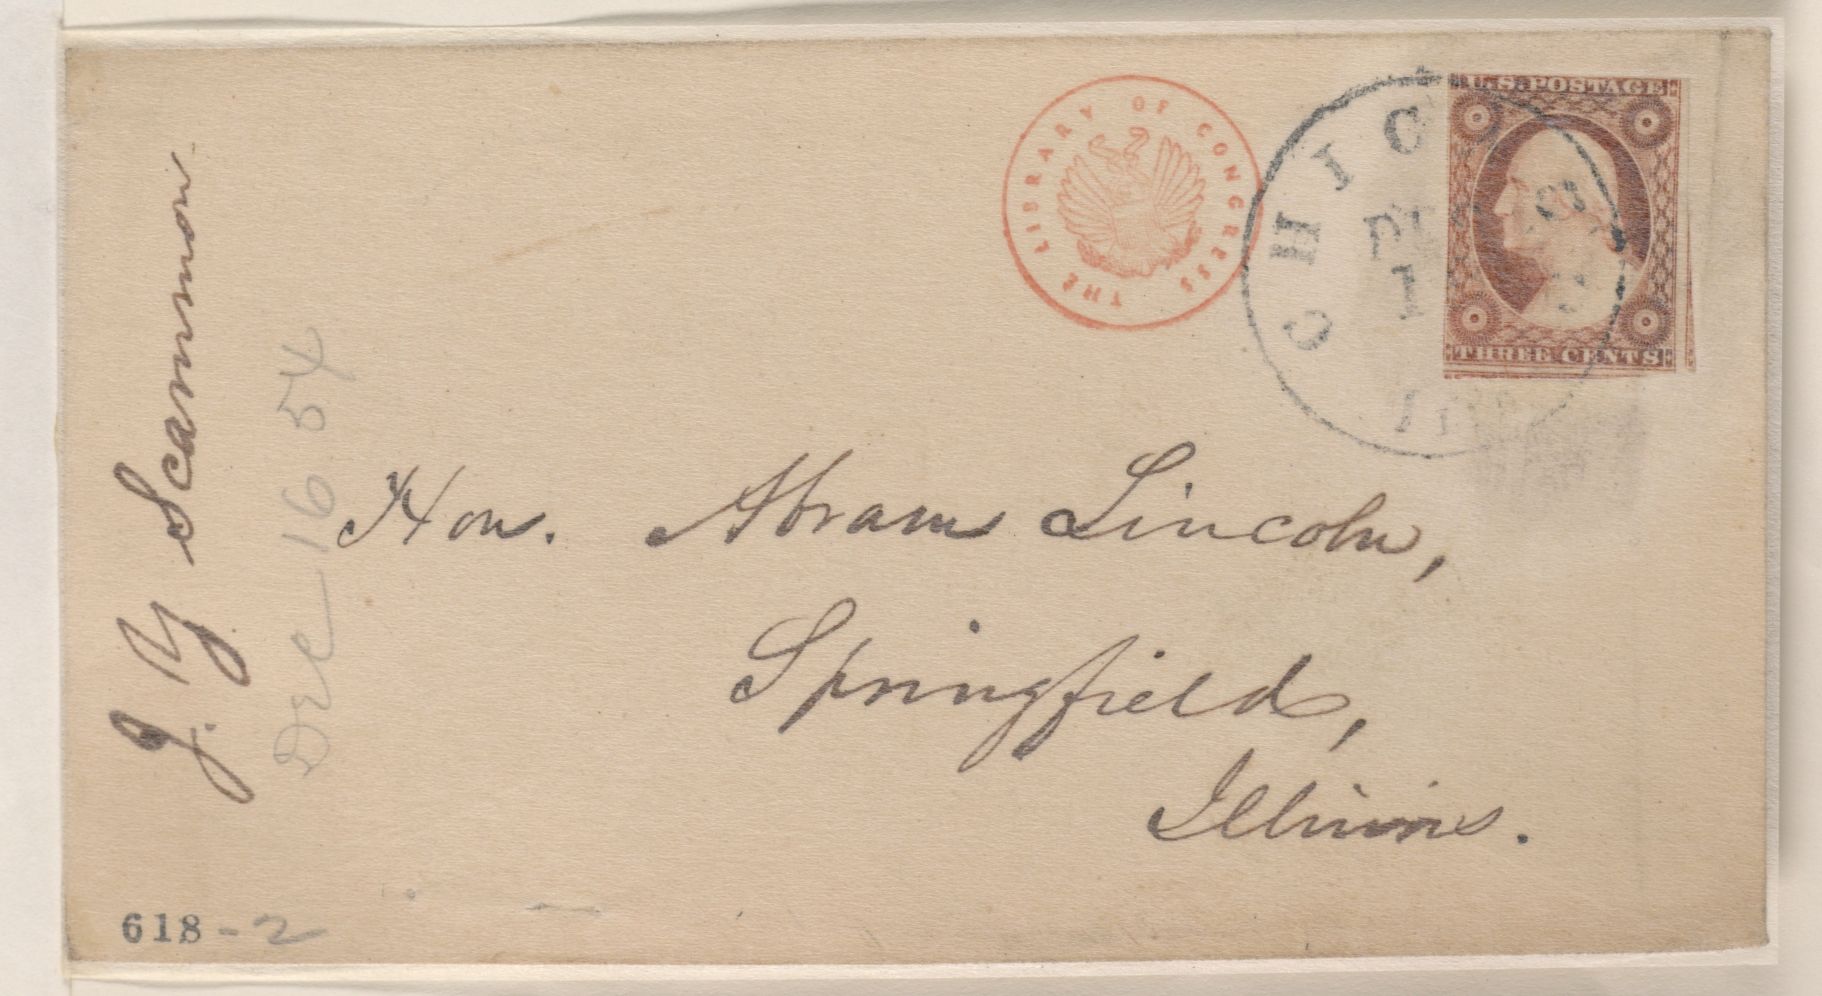 J. Y Scammon
Dec 16 54
THE LIBRARY OF CONGRESS
CHIC
1
U.S. POSTAGE
THREE CENTS
Hon. Abram Lincoln,
Springfield,
Illinois.
618-2